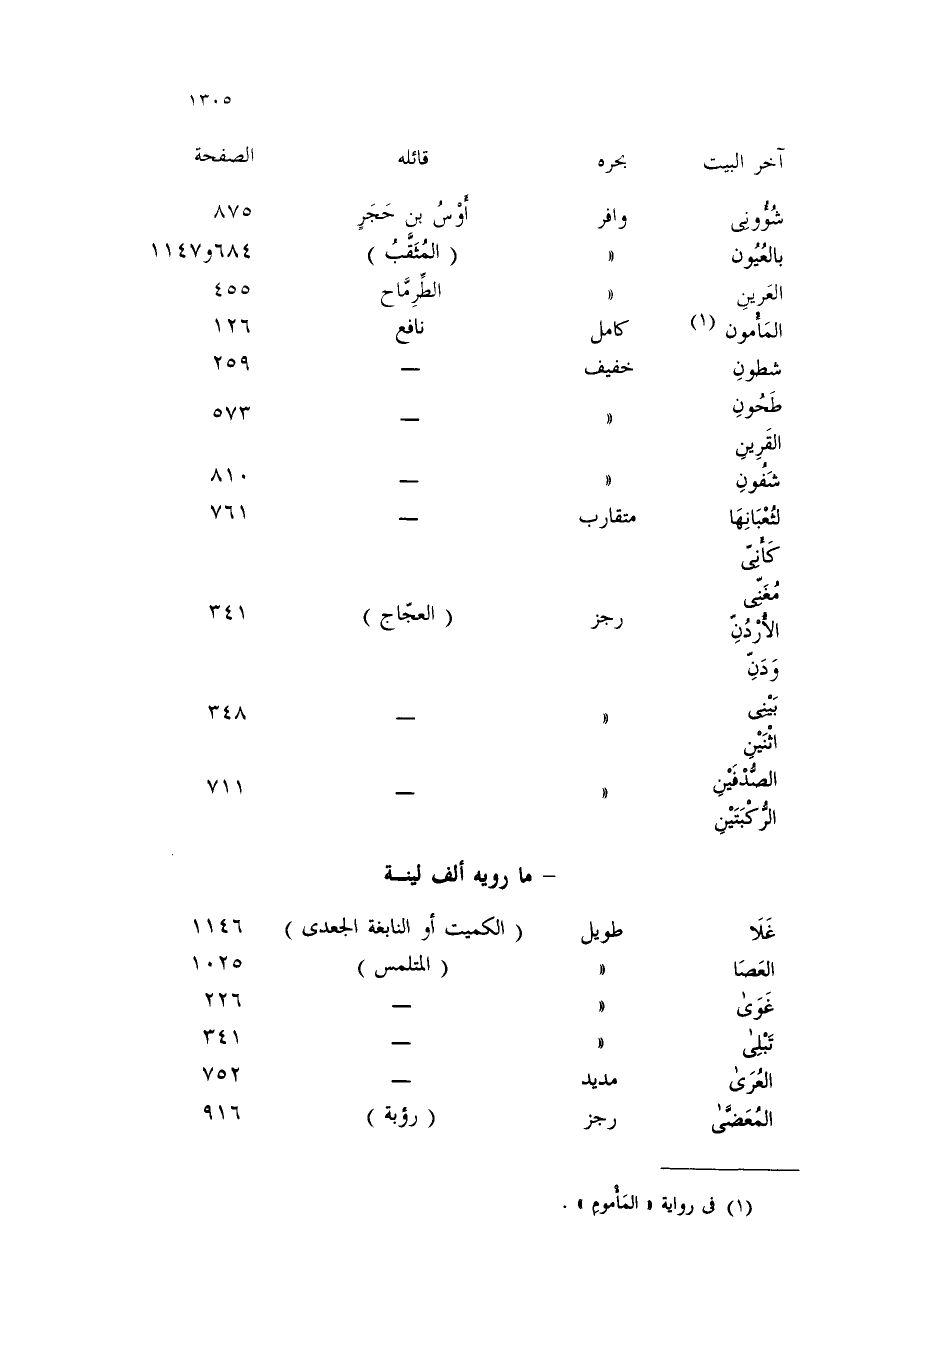 ١٣٠٥
آخر البيت بحره قائله الصفحة
شُؤُونِى وافر أَوْسُ بن حَجَرٍ ٨٧٥
بالعُيُون » ( المُثَقَّبُ ) ٦٨٤و١١٤٧
العَرينِ » الطِّرِمَّاح ٤٥٥
المَأْمون (١) كامل نافع ١٢٦
شطونِ خفيف — ٢٥٩
طَحُونِ
» — ٥٧٣
القَرِينِ
شَفُونِ » — ٨١٠
لثُعْبَانِهَا متقارب — ٧٦١
كَأَنِىّ
مُغَنِّى
رجز ( العجّاج ) ٣٤١
الأُرْدُنِّ
وَدَنِّ
بَيْنِى » — ٣٤٨
اثْنَيْنِ
الصُّدْفَيْنِ
» — ٧١١
الرُّكْبَتَيْنِ
– ما رويه ألف لينة
غَلَا طويل ( الكميت أو النابغة الجعدى ) ١١٤٦
العَصَا » ( المتلمس ) ١٠٢٥
غَوَىٰ » — ٢٢٦
تَبْلِىٰ » — ٣٤١
العُرَىٰ مديد — ٧٥٢
المُعَضَّىٰ رجز ( رؤبة ) ٩١٦
(١) فى رواية « المَأْمومِ » .